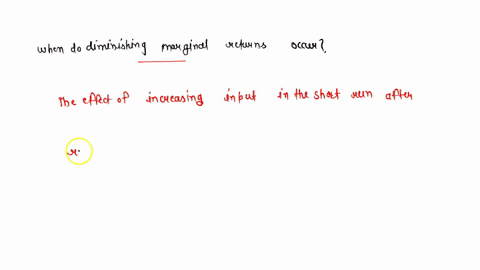 when do diminishing marginal returns occur?
The effect of increasing input in the short run after